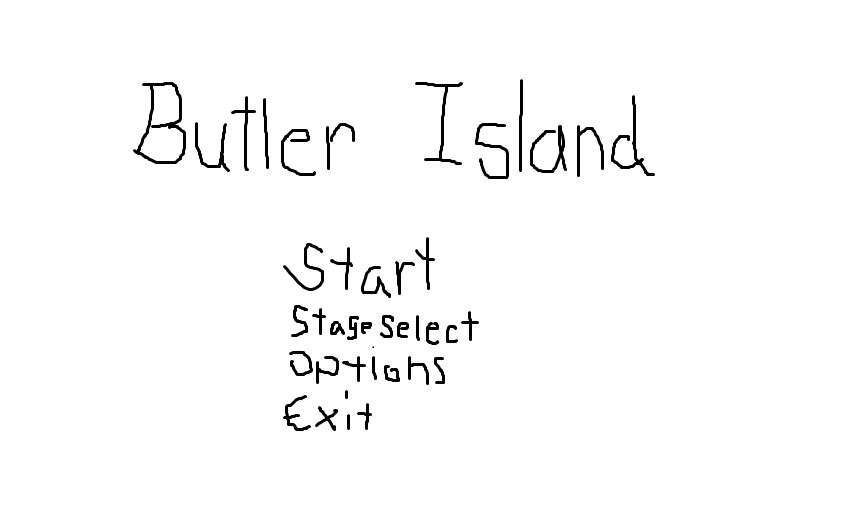 Butler Island
Start
Stage Select
Options
Exit